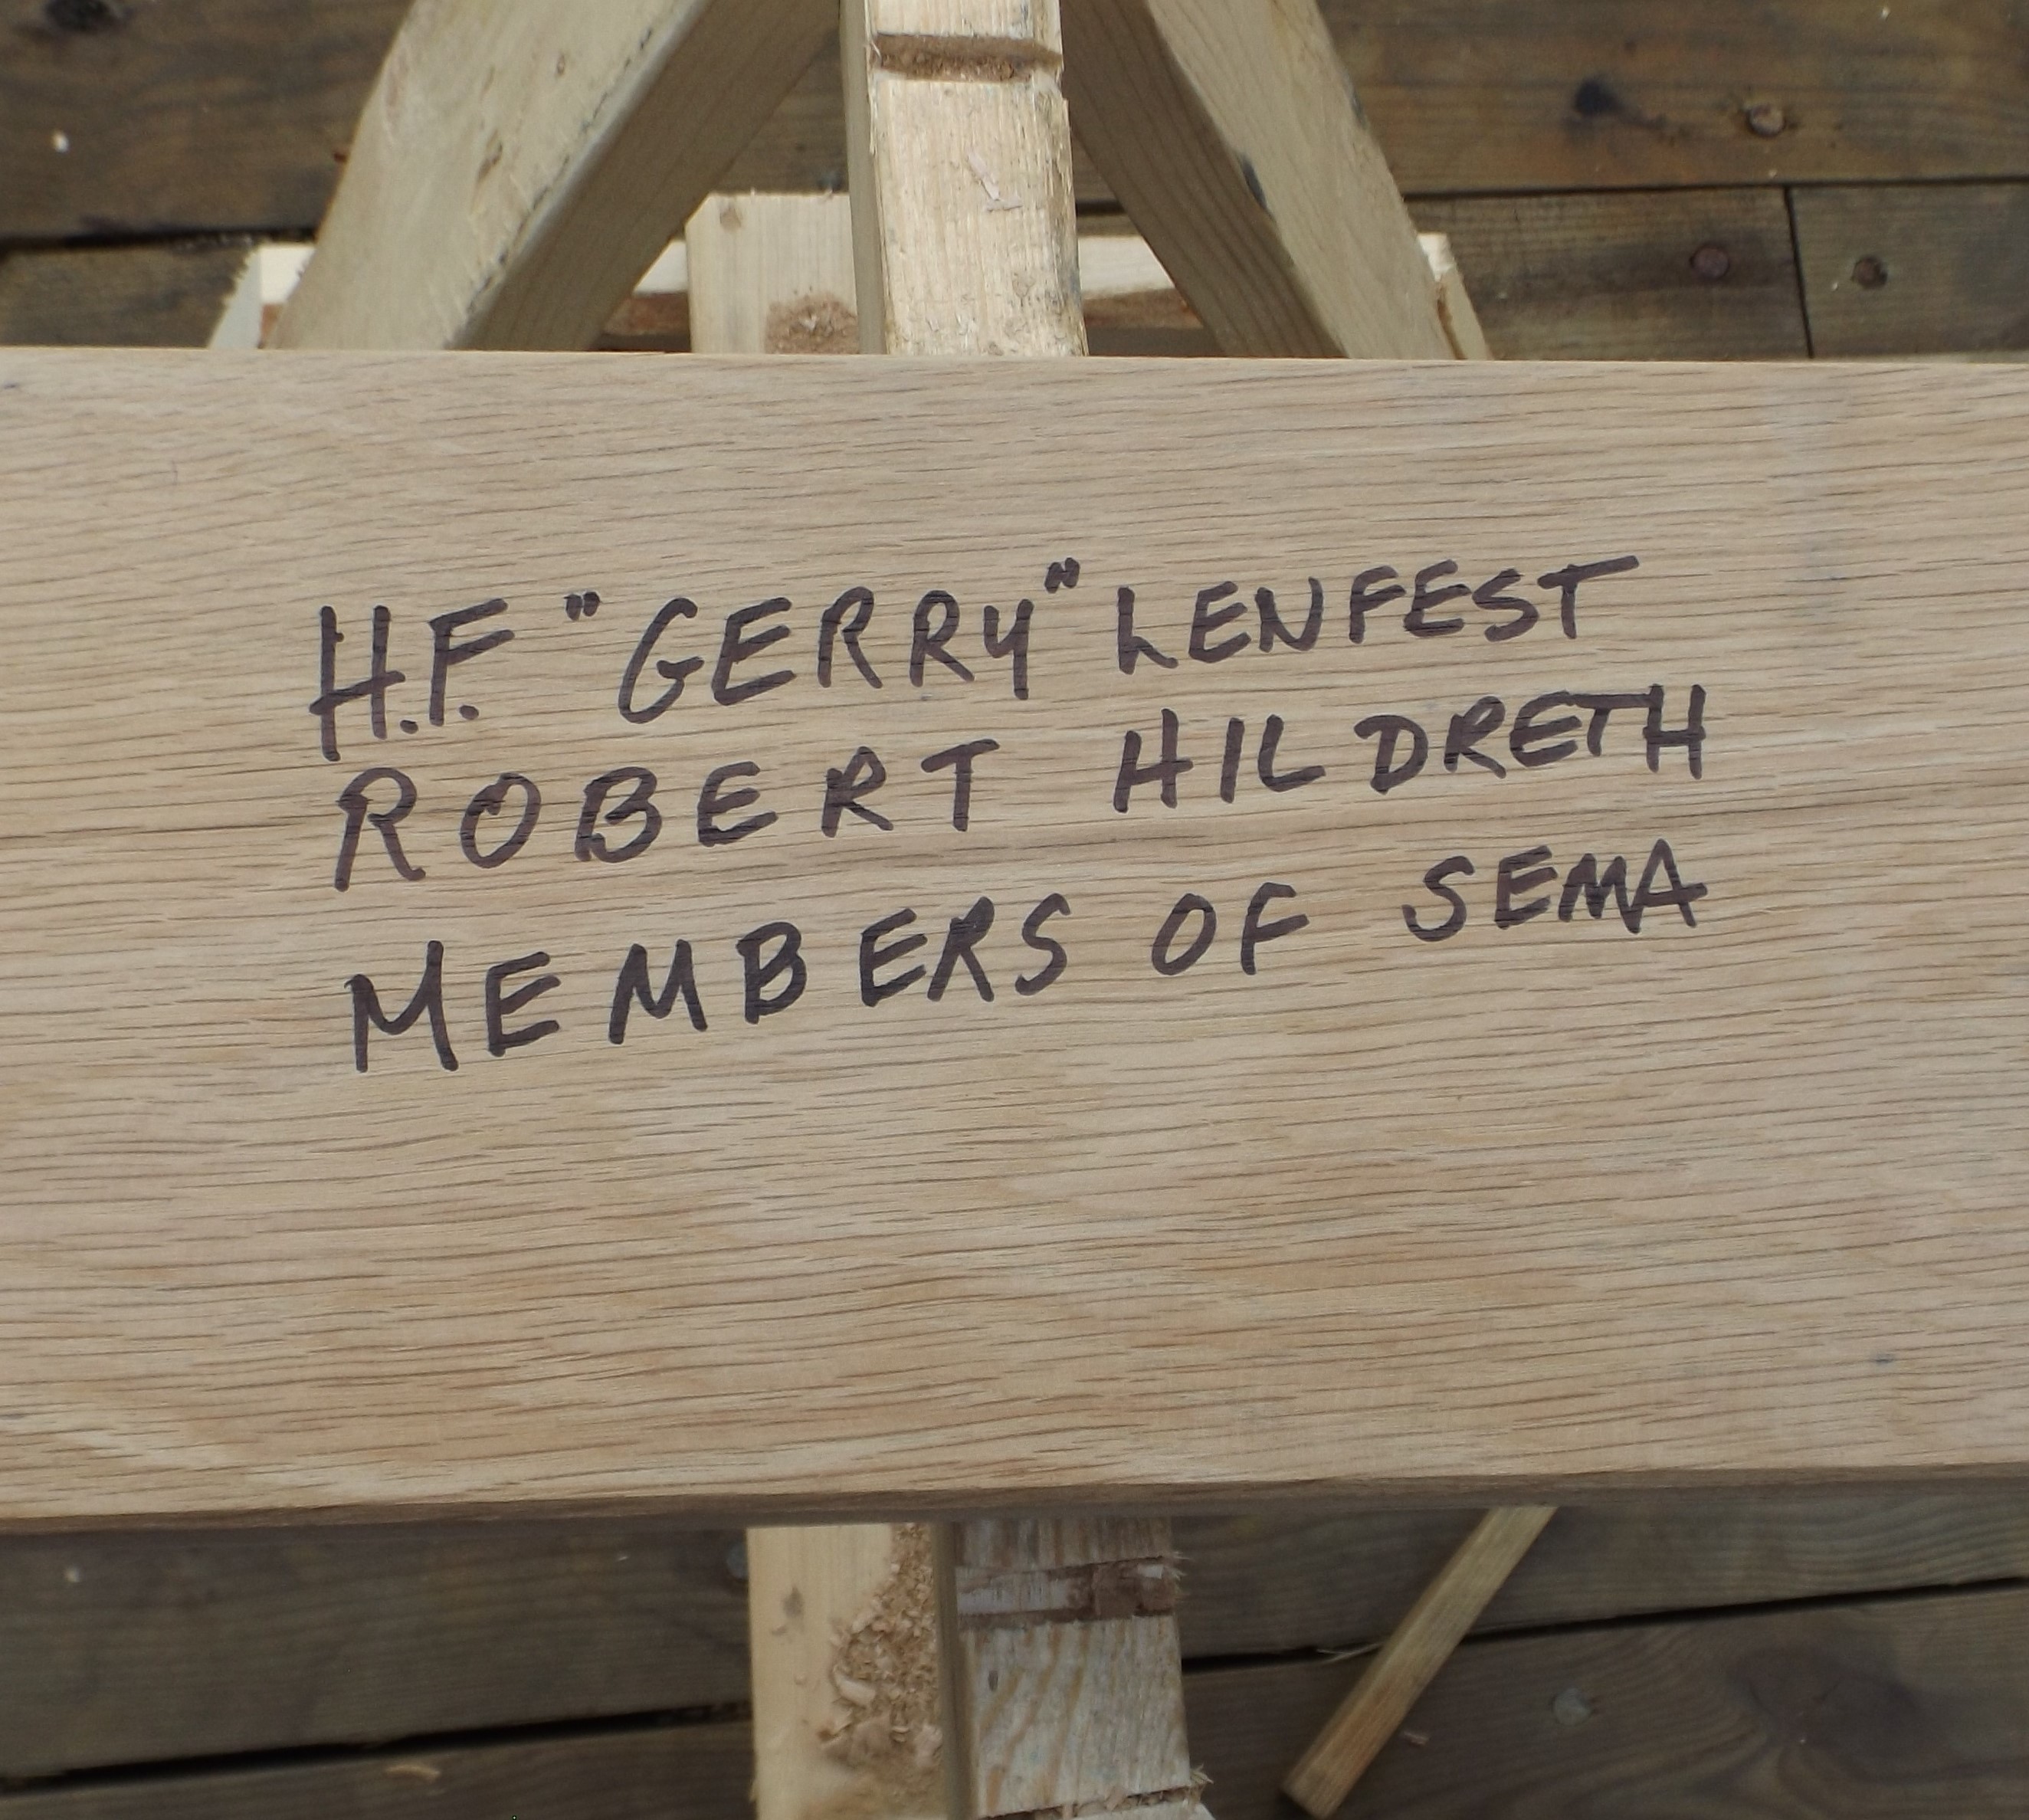 H.F. "GERRY" LENFEST
ROBERT HILDRETH
MEMBERS OF SEMA